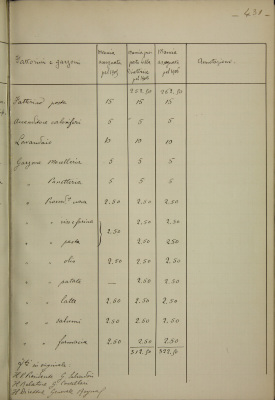 - 431 -
Fattorini e garzoni
Mancia assegnata pel 1905
Mancia proposta dalla Direzione pel 1906
Mancia assegnata pel 1906
Annotazioni
252.50 252.50
Fattorino posta 15 15 15
Accenditore caloriferi 5 5 5
Lavandaio 10 10 10
Garzone Macelleria 5 5 5
" Panetteria 5 5 5
" uova 2.50 2.50 2.50
" " riso e farina 2.50 2.50
2.50
" " pasta 2.50 2.50
" " olio 2.50 2.50 2.50
" " patate — 2.50 2.50
" " latte 2.50 2.50 2.50
" " salumi 2.50 2.50 2.50
" " formaggio 2.50 2.50 2.50
312.50 322.50
Il Presidente G.
Il Relatore G.
Il Direttore Generale